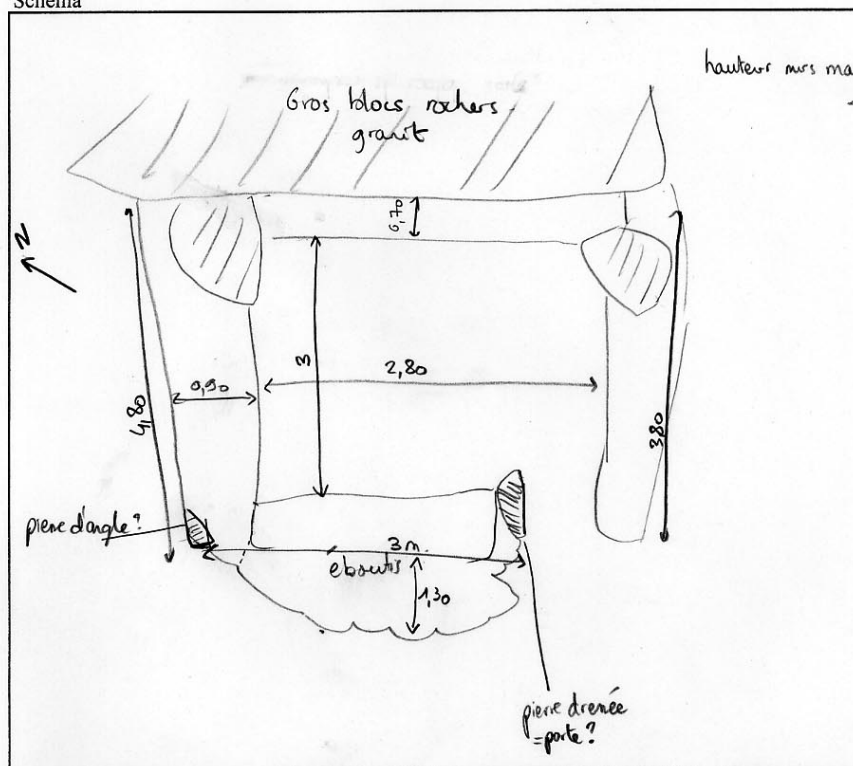 Schéma
hauteur murs ma
Gros blocs rochers
granit
0,70
N
3
2,80
0,90
4,80
3,80
pierre d'angle?
3 m.
eboulis
1,30
pierre dressée
=porte?